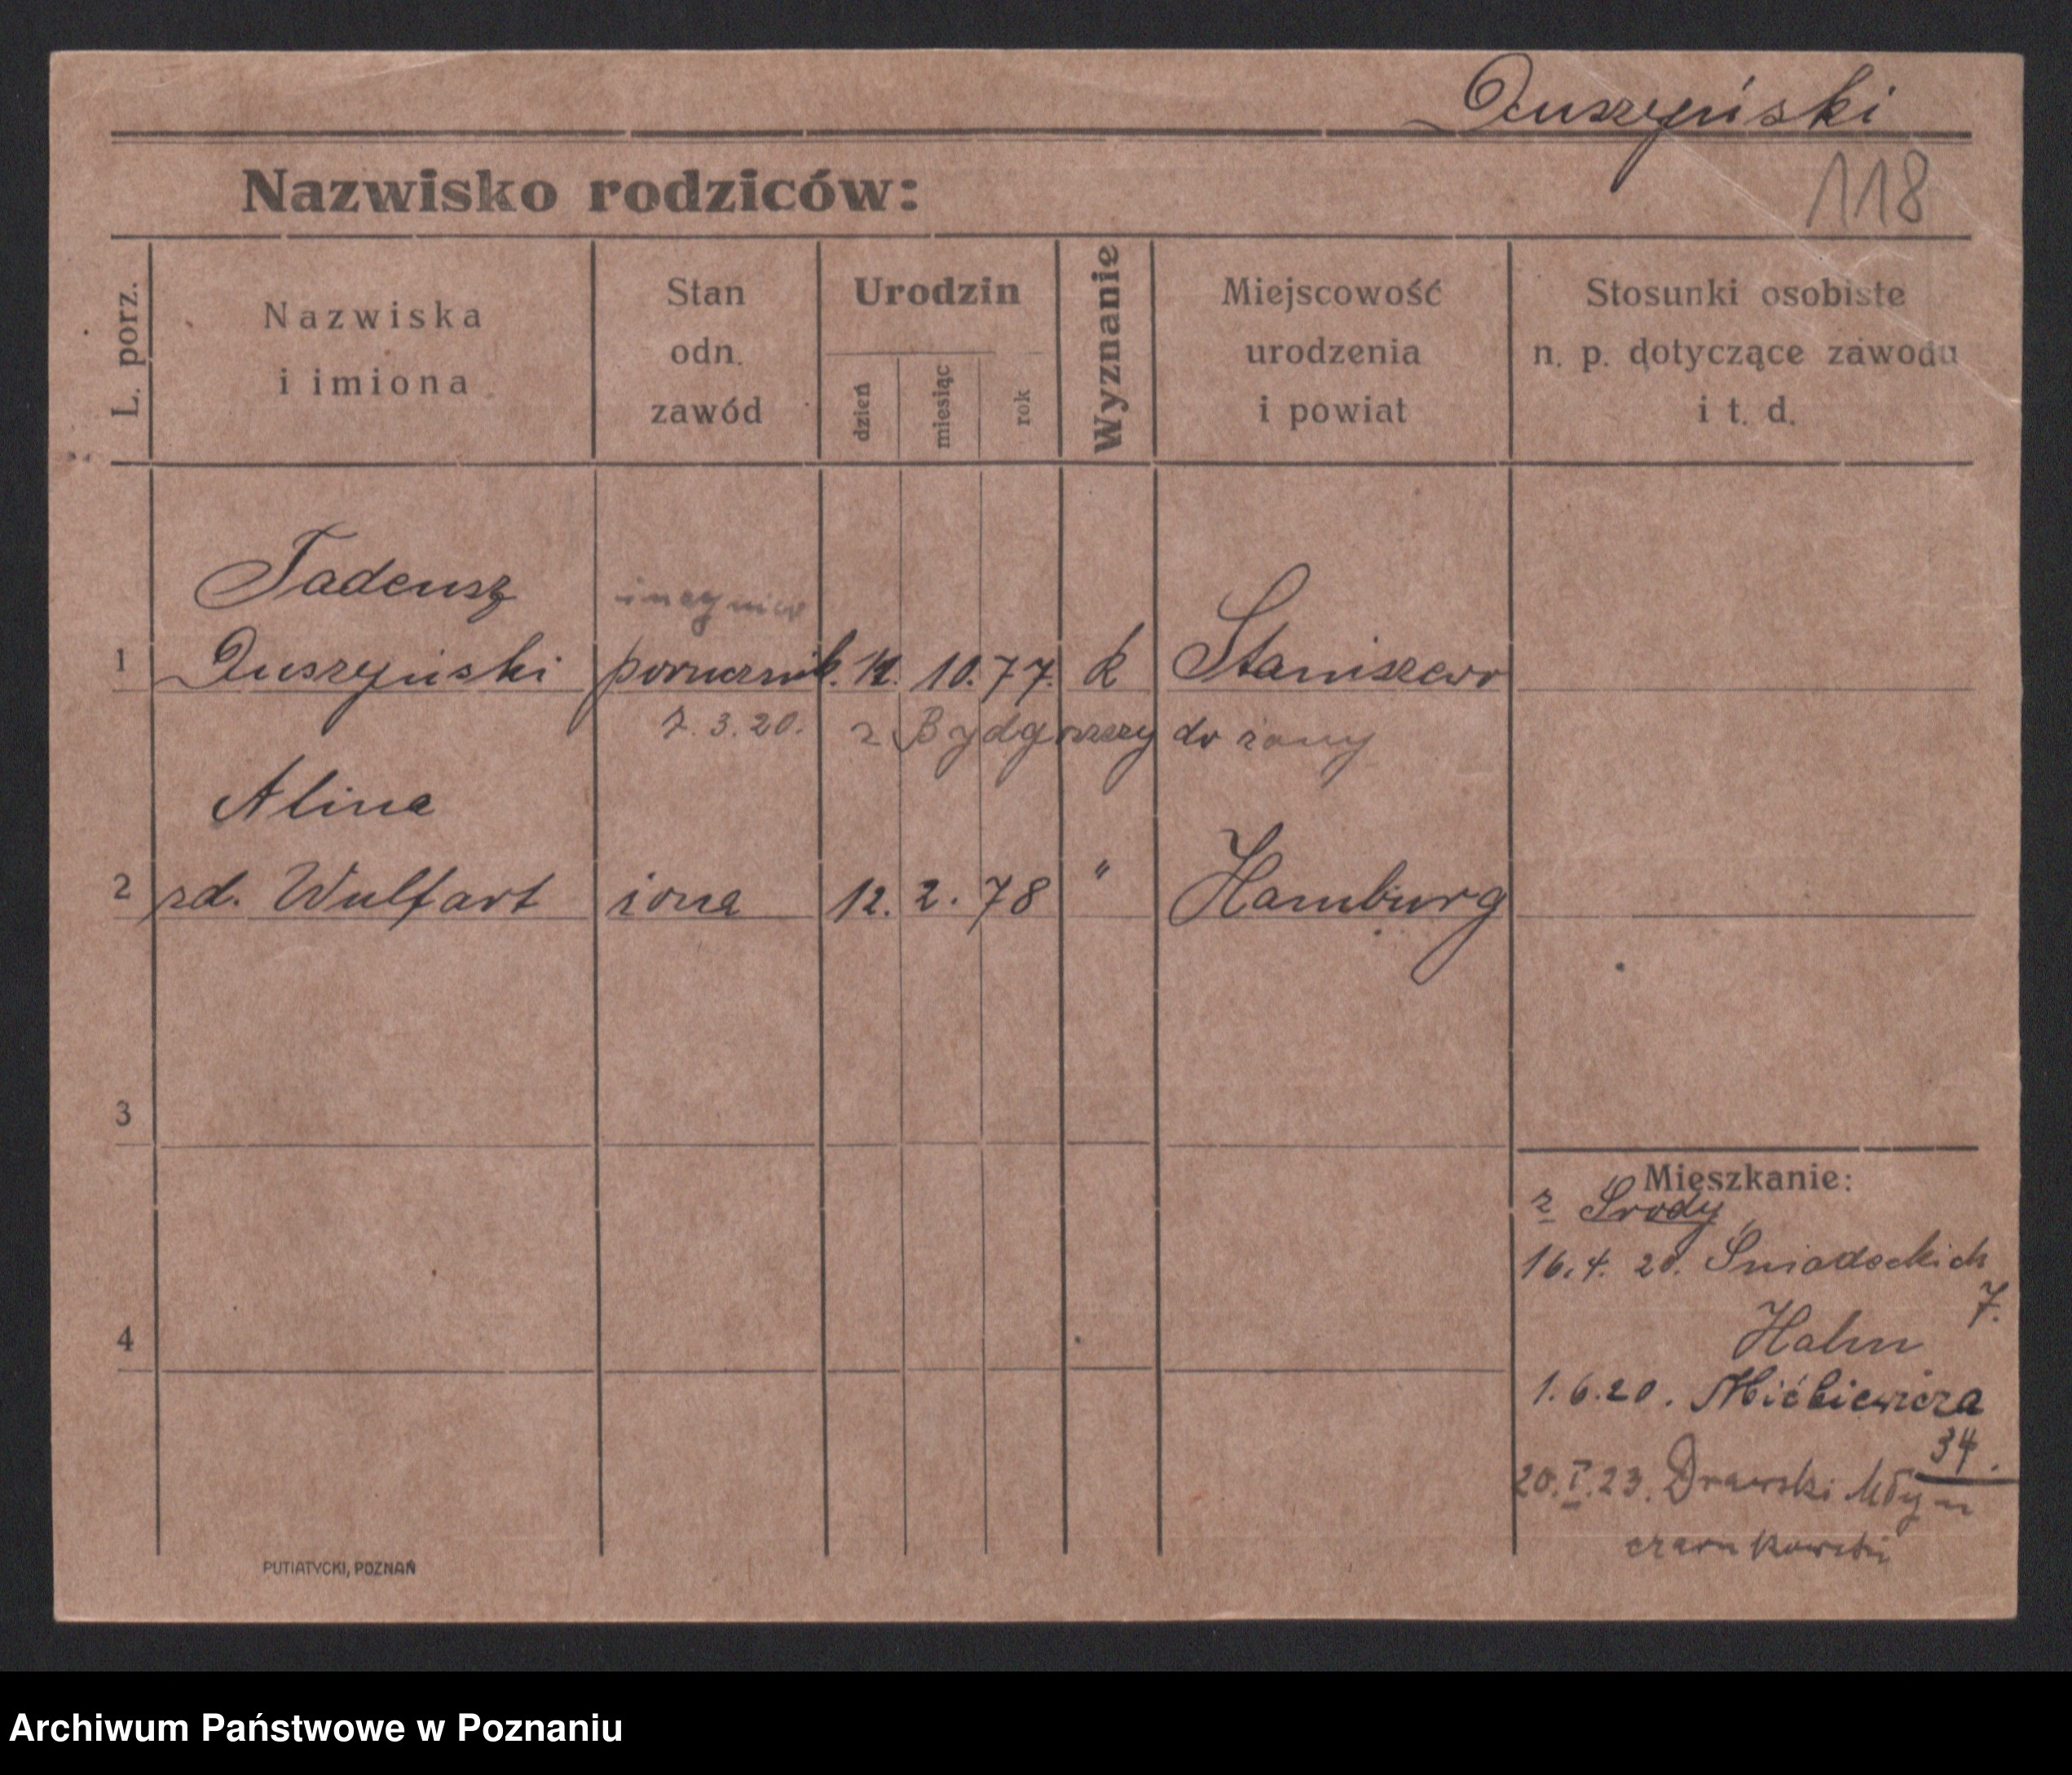 Duszyński
118
Nazwisko rodziców:
L. porz.
Nazwiska
i imiona
Stan
odn.
zawód
Urodzin
dzień
miesiąc
rok
Wyznanie
Miejscowość
urodzenia
i powiat
Stosunki osobiste
n. p. dotyczące zawodu
i t. d.
Tadeusz
inżynier
1 Duszyński porucznik. 10. 77. k Staniszewo
7. 3. 20. z Bydgoszczy do żony
Alina
2 rd. Wulfart żona 12. 2. 78 " Hamburg
3
Mieszkanie:
z Środy
16. 4. 20. Śniadeckich
7.
Hahn
4
1. 6. 20. Mickiewicza
34.
20. I. 23. Drawski Młyn
czarnkowski
PUTIATYCKI, POZNAŃ
Archiwum Państwowe w Poznaniu